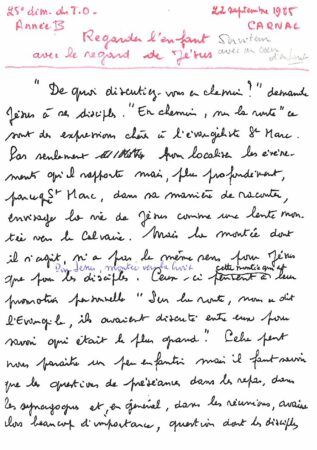 25e dim. du T.O. 22 septembre 1985
Année B CARNAC
Regarder l'enfant Serviteur
avec le regard de Jésus avec un cœur d'enfant
"De quoi discutiez-vous en chemin?" demande
Jésus à ses disciples. "En chemin, sur la route" ce
sont des expressions chères à l'évangéliste St Marc.
Pas seulement pour localiser les événe-
ments qu'il rapporte mais, plus profondément,
parce que St Marc, dans sa manière de raconter,
envisage la vie de Jésus comme une lente mon-
tée vers le Calvaire. Mais la montée dont
il s'agit, n'a pas le même sens pour Jésus
que pour les disciples. Pour Jésus, montée vers la croix Ceux-ci pensent à leur
promotion personnelle "Sur la route, nous dit
l'Evangile, ils avaient discuté entre eux pour
savoir qui était le plus grand". Cela peut
nous paraître un peu enfantin mais il faut savoir
que les questions de préséances dans les repas, dans
les synagogues et, en général, dans les réunions, avaient
alors beaucoup d'importance, question dont les disciples